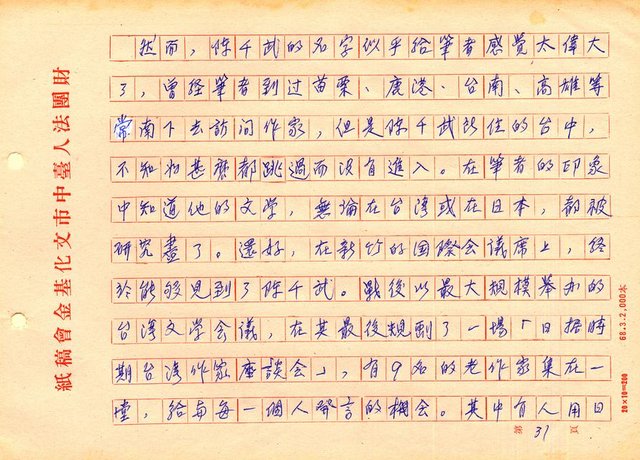 然而，陳千武的名字似乎給筆者感覺太偉大
了，曾経筆者到过苗栗、鹿港、台南、高雄等
常南下去訪问作家，但是陳千武所住的台中，
不知为甚麽都跳過而没有進入。在筆者的印象
中知道他的文学，無論在台湾或在日本，都被
研究盡了。還好，在新竹的国際会议席上，终
於能够見到了陳千武。戰後以最大規模举办的
台湾文学会議，在其最後規劃了一場「日据時
期台湾作家座談会」，有9名的老作家集在一
堂，給与每一個人發言的機会。其中有人用日
第 31 頁
財團法人臺中市文化基金會稿紙
68.3.2,000本
20×10=200